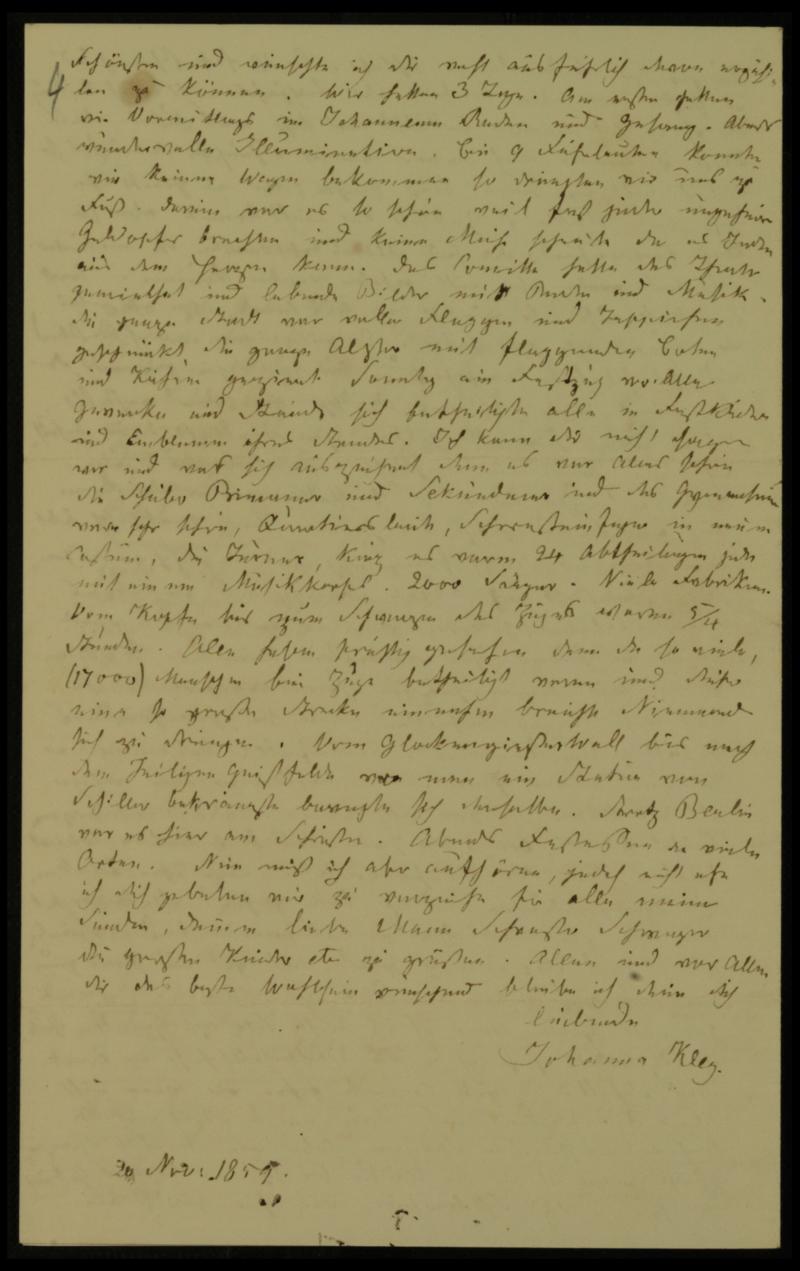 4
Schönsten und wünschte ich dir recht ausführlich davon erzäh-
len zu können. Wir hatten 3 Tage. Am ersten hatten
wir Vormittags im Johanneum Reden und Gesang. Abends
wundervolle Illumination. Bei 9 konnten
wir keinen Wagen bekommen so drängten wir uns zu
Fuß. Darum war es so schön weil fast jeder ungeheure
Geldopfer brachten und keine Mühe scheute da es Jedem
aus dem Herzen kam. Das Comitte hatte das Theater
gemiethet und lebende Bilder mit Reden und Musik.
die ganze Stadt war voller Flaggen und Teppichen
geschmückt, die ganze Alster mit flaggenden Böten
und Kähnen geziert. Sonntag ein Festzug wo alle
Gewerke und Stände sich betheiligten alle in Festkleider
und Emblemen ihres Standes. Ich kann dir nicht sagen
wer und was sich auszeichnet denn es war Alles schön
die Schüler Primaner und Sekundaner und des Gymnasiums
waren sehr schön, Quartiersleute, Schornsteinfeger in neuem
Costüm, die Turner, kurz es waren 24 Abtheilungen jede
mit einem Musikkorps. 2000 Sänger. Viele Fabriken.
Vom Kopfe bis zum Schwanze des Zuges waren 5/4
Stunden. Alle haben prächtig gesehen denn da so viele,
(17000) Menschen beim Zuge betheiligt waren und daher
eine so große Strecke einnahm brauchte Niemand
sich zu drängen. Vom Glockengießerwall bis nach
dem Heiligen Geistfelde wo man ein Statue von
Schiller bekränzte bewegte sich derselbe. Trotz Berlin
war es hier am Schönsten. Abends Festessen an vielen
Orten. Nun muß ich aber aufhören, jedoch nicht ehe
ich dich gebeten mir zu verzeihen für alle meine
Sünden, deinen lieben Mann Schwester Schwager
die großen Kinder etc zu grüßen. Allen und vor Allem
dir das beste Wohlsein wünschend bleibe ich deine dich
liebende
Johanna Kley.
20 Nov: 1859.